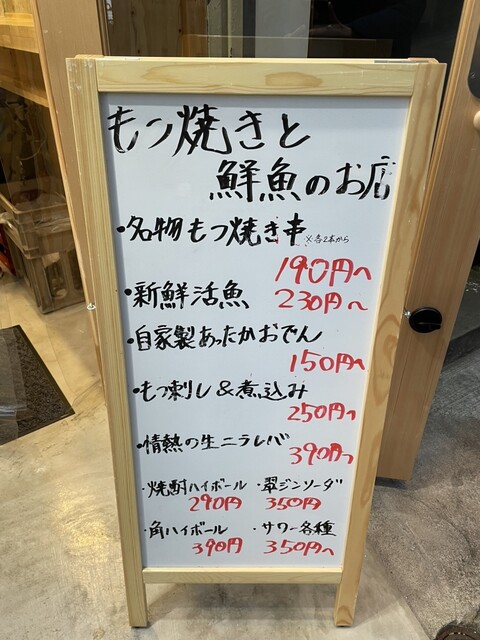 もつ焼きと
鮮魚のお店
・名物もつ焼き串 ※各2本から
190円〜
・新鮮活魚 230円〜
・自家製あったかおでん
150円〜
・もつ刺し&煮込み
250円〜
・情熱の生ニラレバ 390円〜
・焼酎ハイボール ・翠ジンソーダ
290円 350円
・角ハイボール ・サワー各種
390円 350円〜